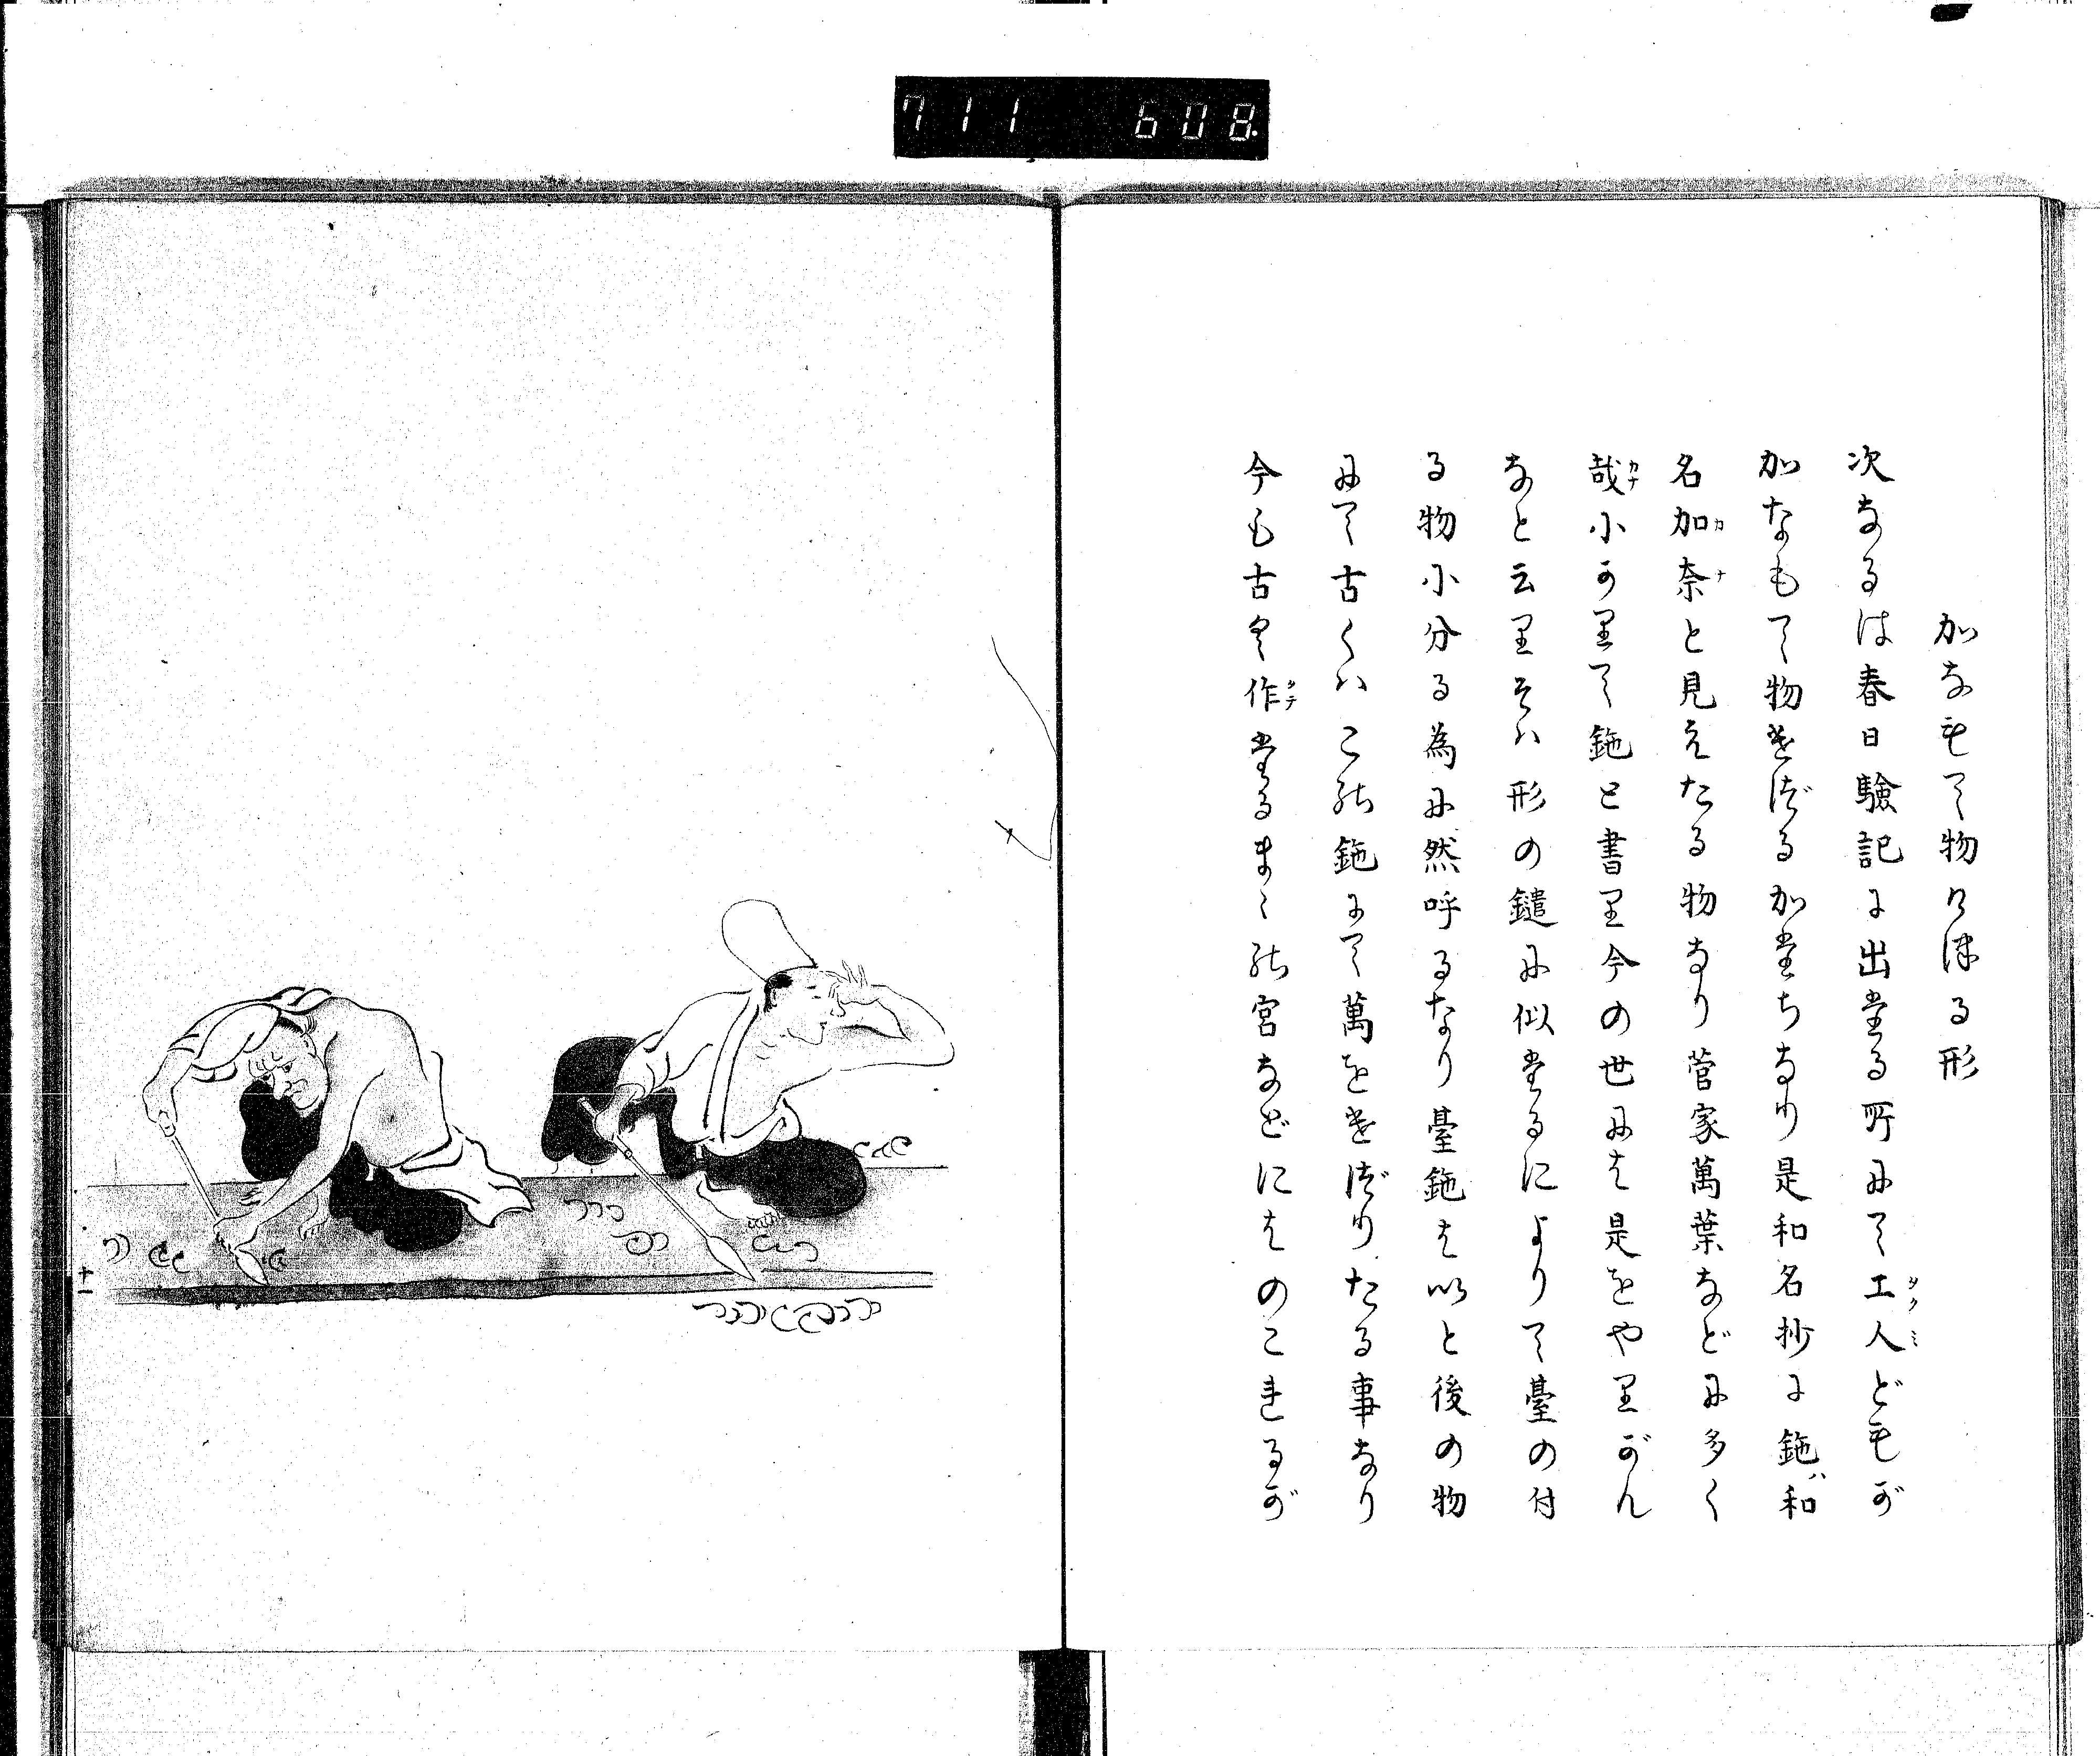 711 608.
加なもて物けづる形
次なるは春日験記に出たる所にて工人どもが
加なもて物をけづるかたちなり是和名抄に鉇和
名加奈と見えたる物なり菅家萬葉などに多く
哉にかりて鉇と書り今の世には是をやりがん
なと云りそは形の鑓に似たるによりて臺の付
る物に分る為に然呼るなり臺鉇はいと後の物
にて古くはこの鉇にて萬をけづりたる事なり
今も古く作たるまゝの宮などにはのこれるが
十一